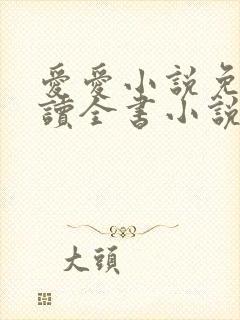 愛愛小說免
讀全書小說
大頭